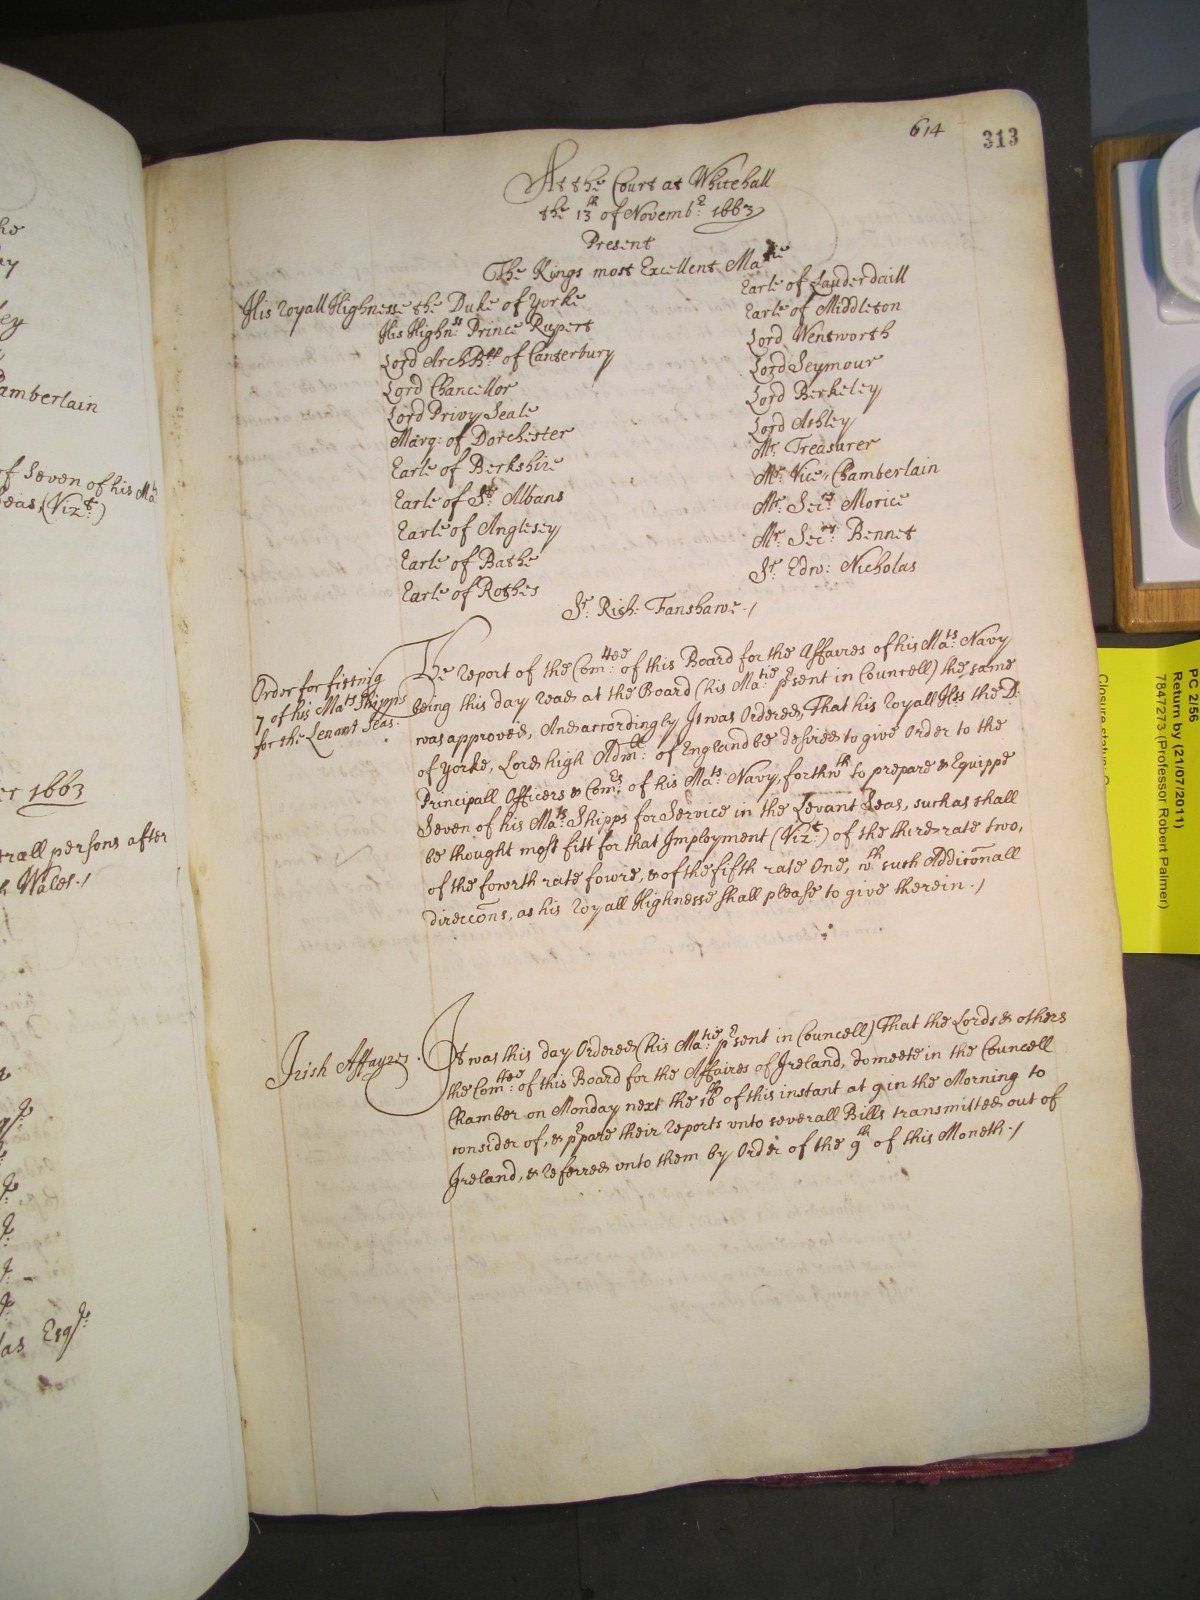 614
313
At the Court at Whitehall
the 13th of Novembr: 1663
Present
The Kings most Excellent Matie
His Royall Highnesse the Duke of Yorke
His Highnss: Prince Rupert
Lord ArchBpp of Canterbury
Lord Chancellor
Lord Privy Seale
Marq: of Dorchester
Earle of Berkshire
Earle of St: Albans
Earle of Anglesey
Earle of Bathe
Earle of Rothes
Earle of Lauderdaill
Earle of Middleton
Lord Wentworth
Lord Seymour
Lord Berkeley
Lord Ashley
Mr. Treasurer
Mr: Vice, Chamberlain
Mr: Secry Morice
Mr: Secry: Bennet
Sr. Edw: Nicholas
Sr. Rich: Fanshawe./
Order for fitting
7 of his Mats Shipps
for the Levant Seas.
The Report of the Comttee: of this Board for the Affaires of his Mats: Navy
being this day read at the Board (his Matie: psent in Councell) the same
was approved, And accordingly It was Ordered, That his Royall Hss the D.
of Yorke, Lord high Adm:ll of England be desired to give Order to the
Principall Officers & Com:rs of his Mats: Navy, forthwth to prepare & Equippe
Seven of his Mats: Shipps for Service in the Levant Seas, such as shall
be thought most fitt for that Imployment (Vizt:) of the third rate two,
of the fowrth rate fowre, & of the fifth rate One, wth such Additonall
direccons, as his Royall Highnesse shall please to give therein./
Irish Affayres.
It was this day Ordered (his Matie: psent in Councell) That the Lords & others
the Comttee: of this Board for the Affaires of Ireland, do meete in the Councell
Chamber on Monday next the 16th of this instant at 9 in the Morning to
consider of, & ppare their Reports unto severall Bills transmitted out of
Ireland, & referred unto them by Order of the 9th of this Moneth./
amberlain
of Seven of his Mats
Seas, (Vizt:)
er 1663
rall persons after
Wales./
las Esqr:
PC 2/56
Return by (21/07/2011)
7847273 (Professor Robert Palmer)